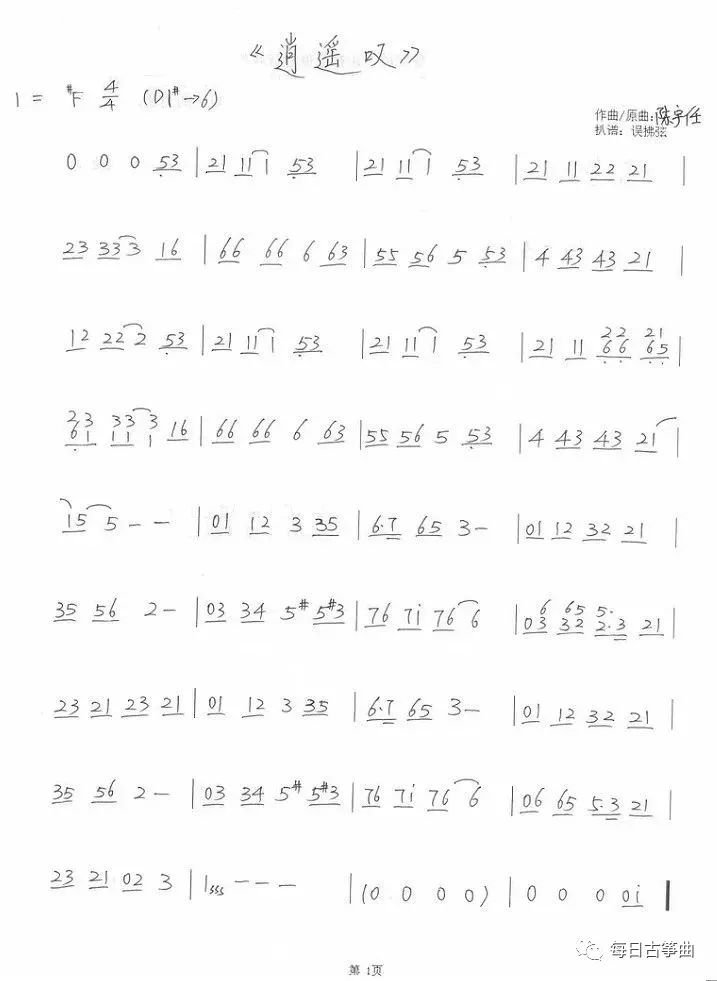 《逍遥叹》
1 = #F 4/4 (D1#→6)
作曲/原曲:陈宇任
扒谱: 误拂弦
0 0 0 53 | 21 11 1 53 | 21 11 1 53 | 21 11 22 21 |
23 33 3 16 | 66 66 6 63 | 55 56 5 53 | 4 43 43 21 |
12 22 2 53 | 21 11 1 53 | 21 11 1 53 | 21 11 66 65 |
22 21
23 33 3
61 11 1 16 | 66 66 6 63 | 55 56 5 53 | 4 43 43 21 |
15 5 - - | 01 12 3 35 | 6·7 65 3 - | 01 12 32 21 |
35 56 2 - | 03 34 5# 5#3 | 76 7i 76 6 | 03 32 2·3 21 |
6 65 5·
23 21 23 21 | 01 12 3 35 | 6·7 65 3 - | 01 12 32 21 |
35 56 2 - | 03 34 5# 5#3 | 76 7i 76 6 | 06 65 5·3 21 |
23 21 02 3 | 1sss - - - | (0 0 0 0) | 0 0 0 0i
每日古筝曲
第 1页